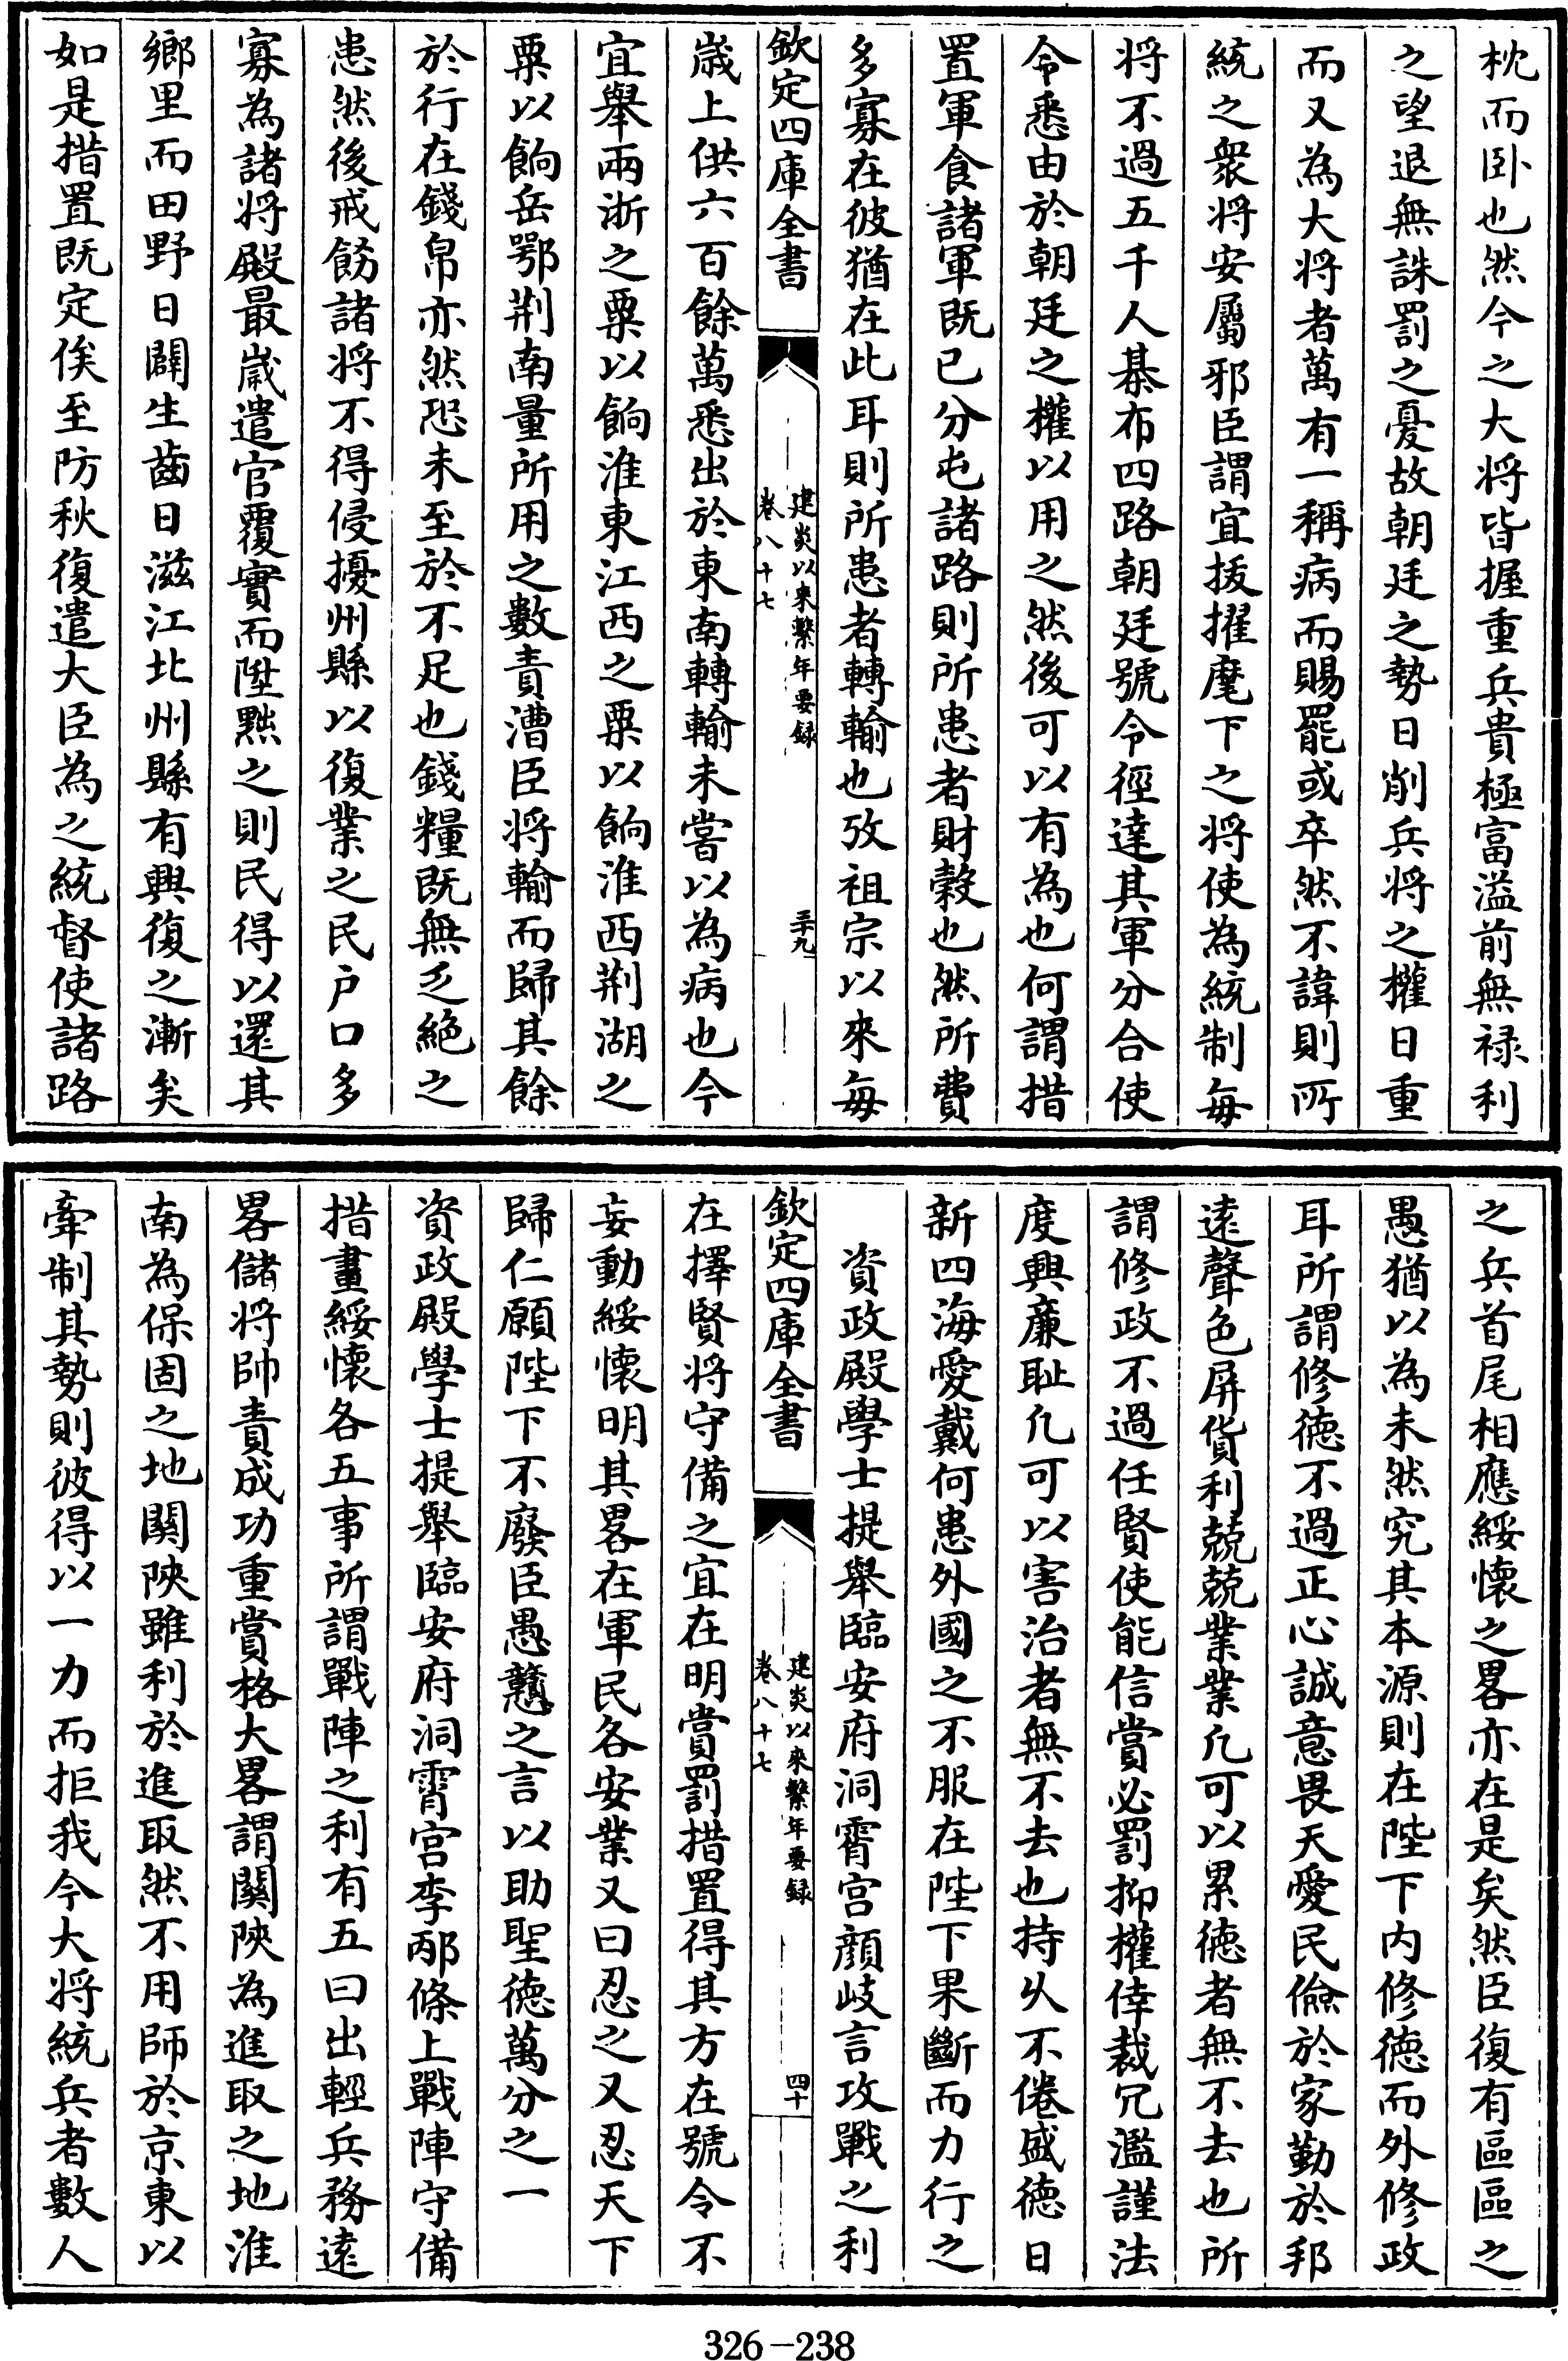 枕而卧也然今之大将皆握重兵貴極富溢前無禄利
之望退無誅罰之憂故朝廷之勢日削兵将之權日重
而又為大将者萬有一稱病而賜罷或卒然不諱則所
統之衆将安屬邪臣謂宜拔擢麾下之将使為統制每
将不過五千人棊布四路朝廷號令徑達其軍分合使
令悉由於朝廷之權以用之然後可以有為也何謂措
置軍食諸軍既已分屯諸路則所患者財榖也然所費
多寡在彼猶在此耳則所患者轉輸也攷祖宗以來每
欽定四庫全書
建炎以來繫年要録
卷八十七
三十九
歳上供六百餘萬悉出於東南轉輸未嘗以為病也今
宜舉兩浙之粟以餉淮東江西之粟以餉淮西荆湖之
粟以餉岳鄂荆南量所用之數責漕臣将輸而歸其餘
於行在錢帛亦然恐未至於不足也錢糧既無乏絕之
患然後戒飭諸将不得侵擾州縣以復業之民户口多
寡為諸将殿最歳遣官覆實而陞黜之則民得以還其
鄉里而田野日闢生齒日滋江北州縣有興復之漸矣
如是措置既定俟至防秋復遣大臣為之統督使諸路
之兵首尾相應綏懷之畧亦在是矣然臣復有區區之
愚猶以為未然究其本源則在陛下内修徳而外修政
耳所謂修徳不過正心誠意畏天愛民儉於家勤於邦
逺聲色屏貨利兢兢業業凡可以累徳者無不去也所
謂修政不過任賢使能信賞必罰抑權倖裁冗濫謹法
度興廉耻凡可以害治者無不去也持乆不倦盛徳日
新四海愛戴何患外國之不服在陛下果斷而力行之
資政殿學士提舉臨安府洞霄宫顔岐言攻戰之利
欽定四庫全書
建炎以來繫年要録
卷八十七
四十
在擇賢将守備之宜在明賞罰措置得其方在號令不
妄動綏懷明其畧在軍民各安業又曰忍之又忍天下
歸仁願陛下不廢臣愚戇之言以助聖徳萬分之一
資政殿學士提舉臨安府洞霄宫李邴條上戰陣守備
措畫綏懷各五事所謂戰陣之利有五曰出輕兵務逺
畧儲将帥責成功重賞格大畧謂關陜為進取之地淮
南為保固之地關陜雖利於進取然不用師於京東以
牽制其勢則彼得以一力而拒我今大将統兵者數人
326-238